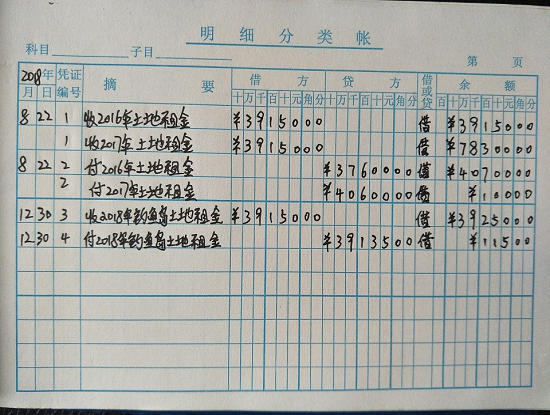 明细分类帐
科目 子目 第 页
2018年 凭证 摘要 借方 贷方 借或贷 余额
月 日 编号 十万千百十元角分 十万千百十元角分 百十万千百十元角分
8 22 1 收2016年土地租金 ¥3915000 借 ¥3915000
1 收2017年土地租金 ¥3915000 借 ¥7830000
8 22 2 付2016年土地租金 ¥3760000 借 ¥4070000
2 付2017年土地租金 ¥4060000 借 ¥10000
12 30 3 收2018年钓鱼岛土地租金 ¥3915000 借 ¥3925000
12 30 4 付2018年钓鱼岛土地租金 ¥3913500 借 ¥11500